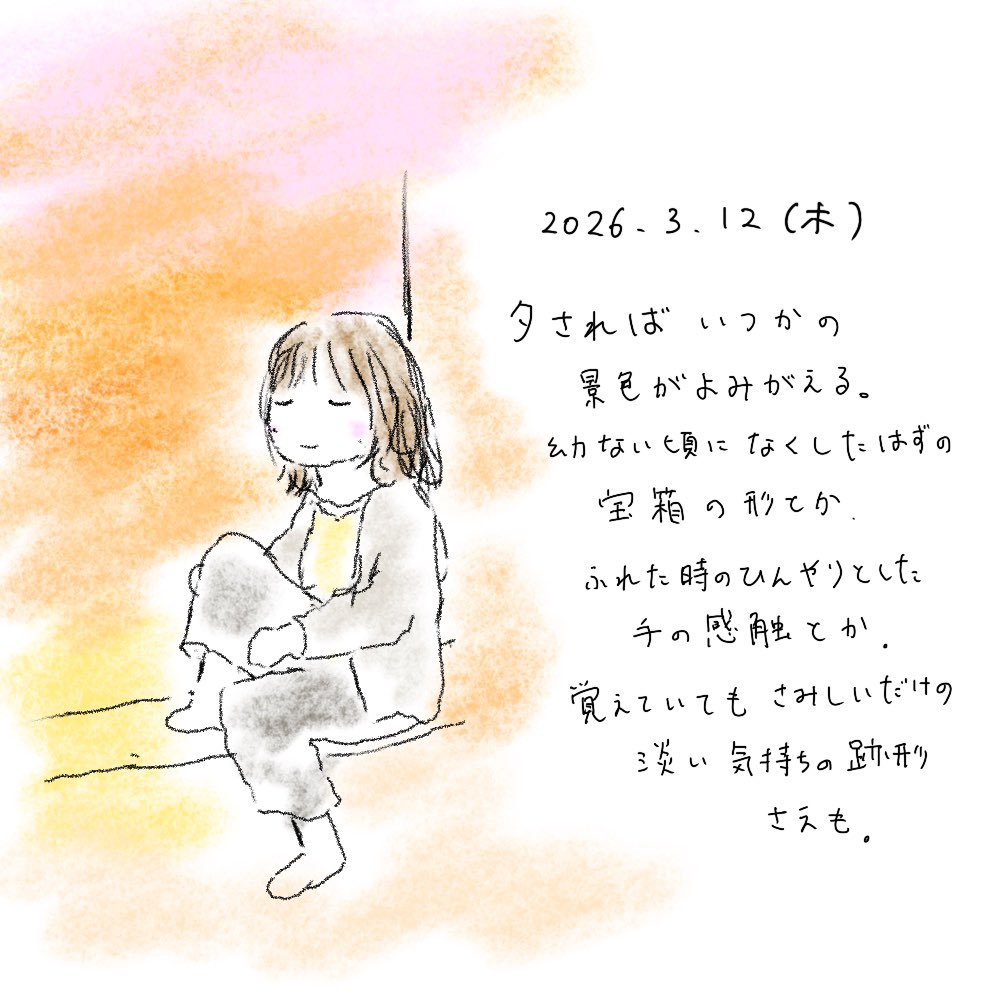 2026.3.12(木)
夕されば いつかの
景色がよみがえる。
幼ない頃に なくしたはずの
宝箱の形とか.
ふれた時のひんやりとした
手の感触とか.
覚えていても さみしいだけの
淡い気持ちの跡形
さえも。